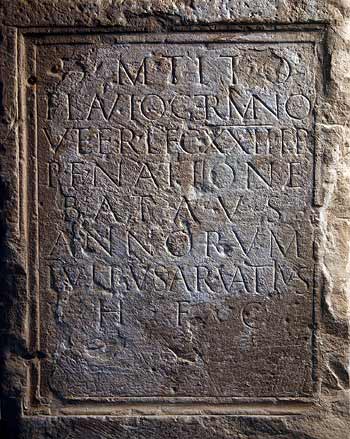 M TITO
FLAVIO GERMNO
VETER LEG XXII PR
P F NATIONE
BATAVS
ANNORVM
ARVATIVS
H F C